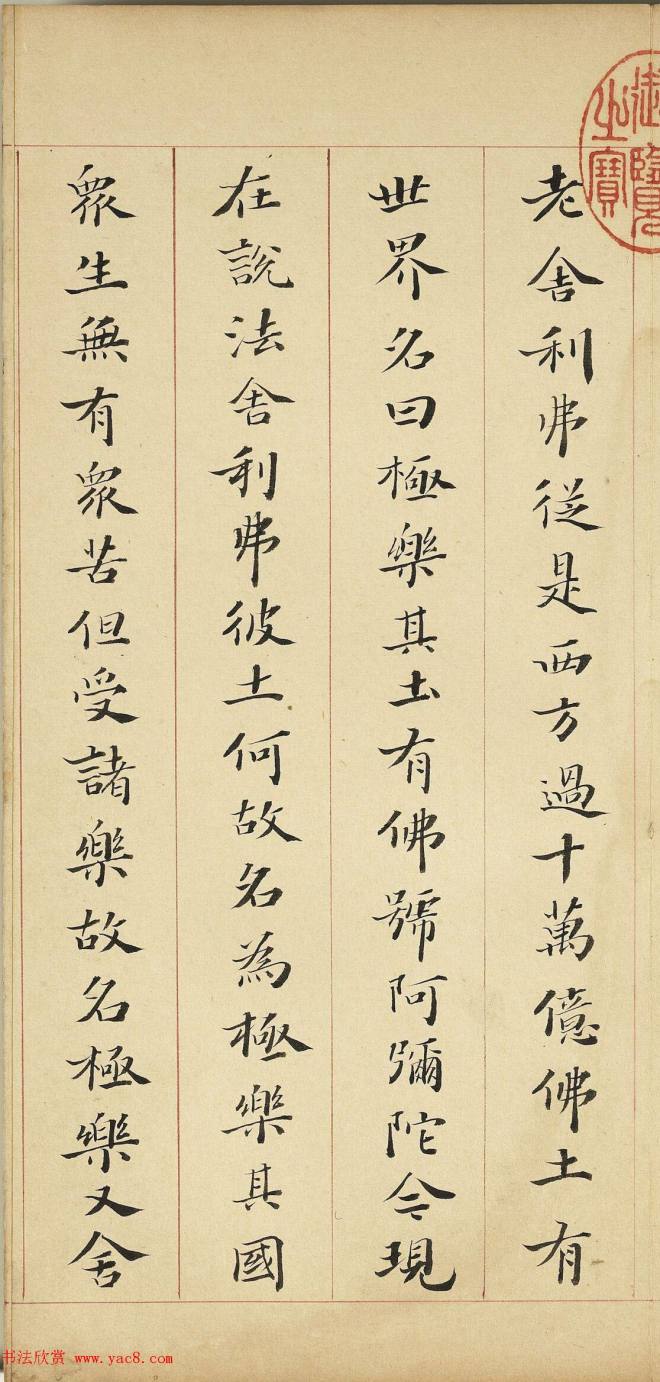 老舍利弗從是西方過十萬億佛土有
世界名曰極樂其土有佛號阿彌陀今現
在說法舍利弗彼土何故名為極樂其國
眾生無有眾苦但受諸樂故名極樂又舍
御覽之寶
书法欣赏 www.yac8.com